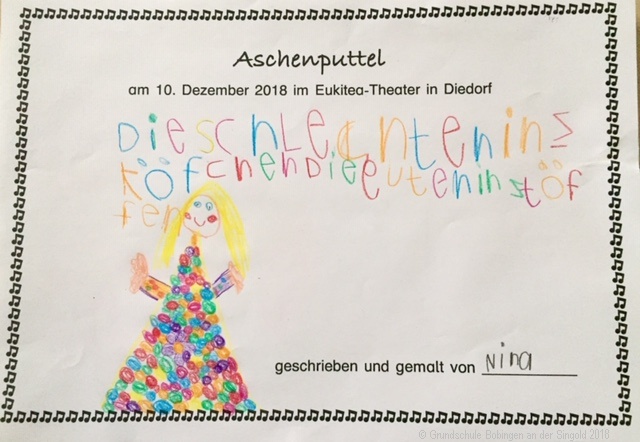 Aschenputtel
am 10. Dezember 2018 im Eukitea-Theater in Diedorf
DieSchLechtenins
KÖfchenDieeuteninstöf
fen
geschrieben und gemalt von Nina
© Grundschule Bobingen an der Singold 2018